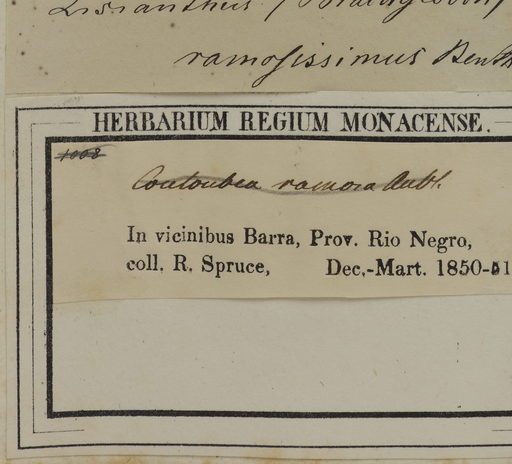 Lisianthus (
ramosissimus Benth
HERBARIUM REGIUM MONACENSE.
1008
Coutoubea ramosa Aubl.
In vicinibus Barra, Prov. Rio Negro,
coll. R. Spruce, Dec.-Mart. 1850-51